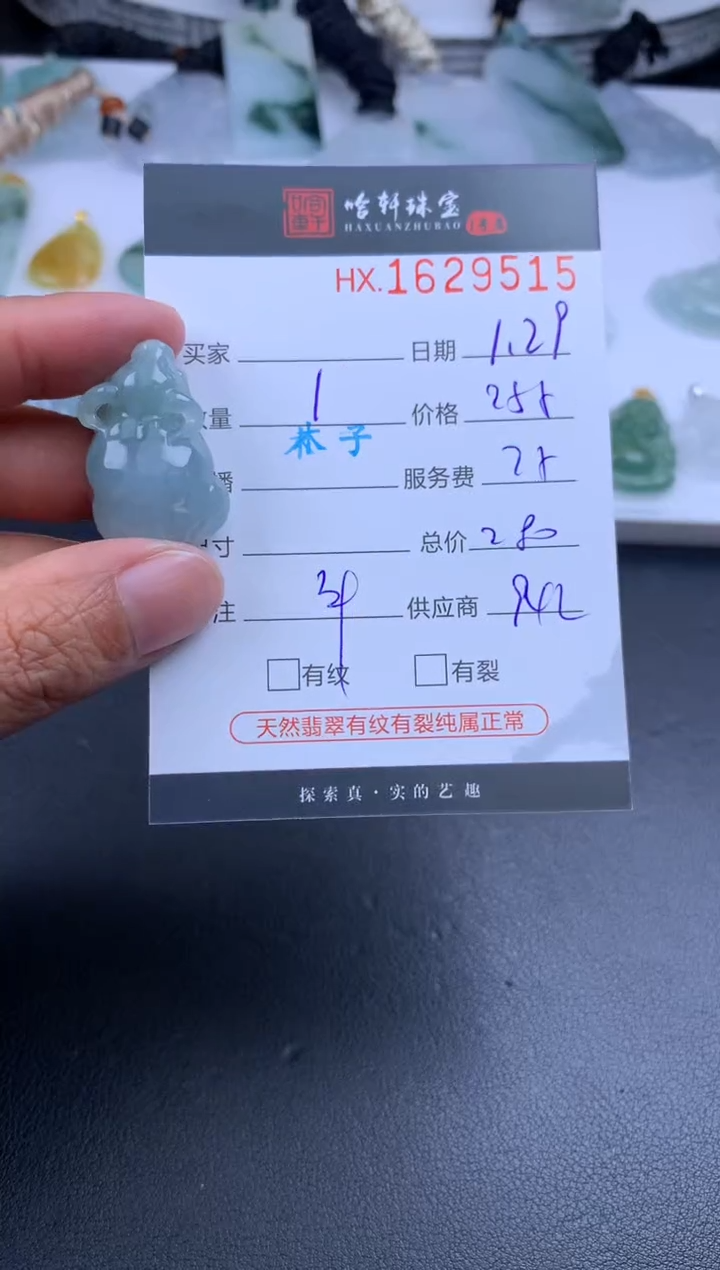 哈轩珠宝
HAXUANZHUBAO
HX.1629515
买家 日期 1.29
量 1 价格 255
林子
播 服务费 25
寸 总价 280
注 供应商 942
有纹 有裂
天然翡翠有纹有裂纯属正常
探索真·实的艺趣